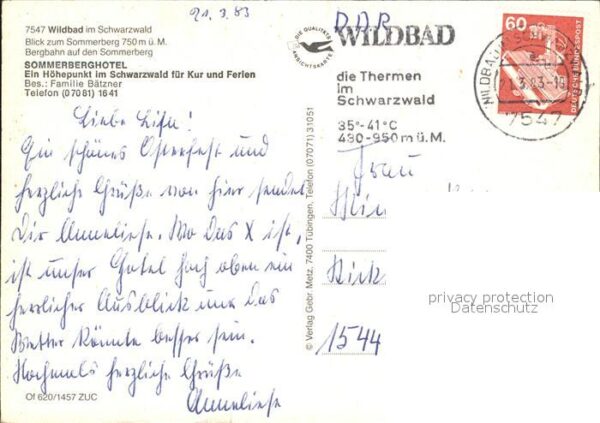 21.3.83
7547 Wildbad im Schwarzwald
Blick zum Sommerberg 750 m ü. M.
Bergbahn auf den Sommerberg
SOMMERBERGHOTEL
Ein Höhepunkt im Schwarzwald für Kur und Ferien
Bes.: Familie Bätzner
Telefon (07081) 1641
Ein schönes Osterfest und
herzliche Grüße von hier sendet
Dir Anneliese. Wo das X ist,
ist unser Hotel hoch oben ein
herrlicher Ausblick nur das
Wetter könnte besser sein.
Nochmals herzliche Grüße
Anneliese
Of 620/1457 ZUC
© Verlag Gebr. Metz, 7400 Tübingen, Telefon (07071) 31051
DIE QUALITÄTS
ANSICHTSKARTE
DDR
WILDBAD
die Thermen
im
Schwarzwald
35°-41°C
430-950 m ü. M.
60
DEUTSCHE BUNDESPOST
WILDBAD
7547
Frau
1544
privacy protection
Datenschutz